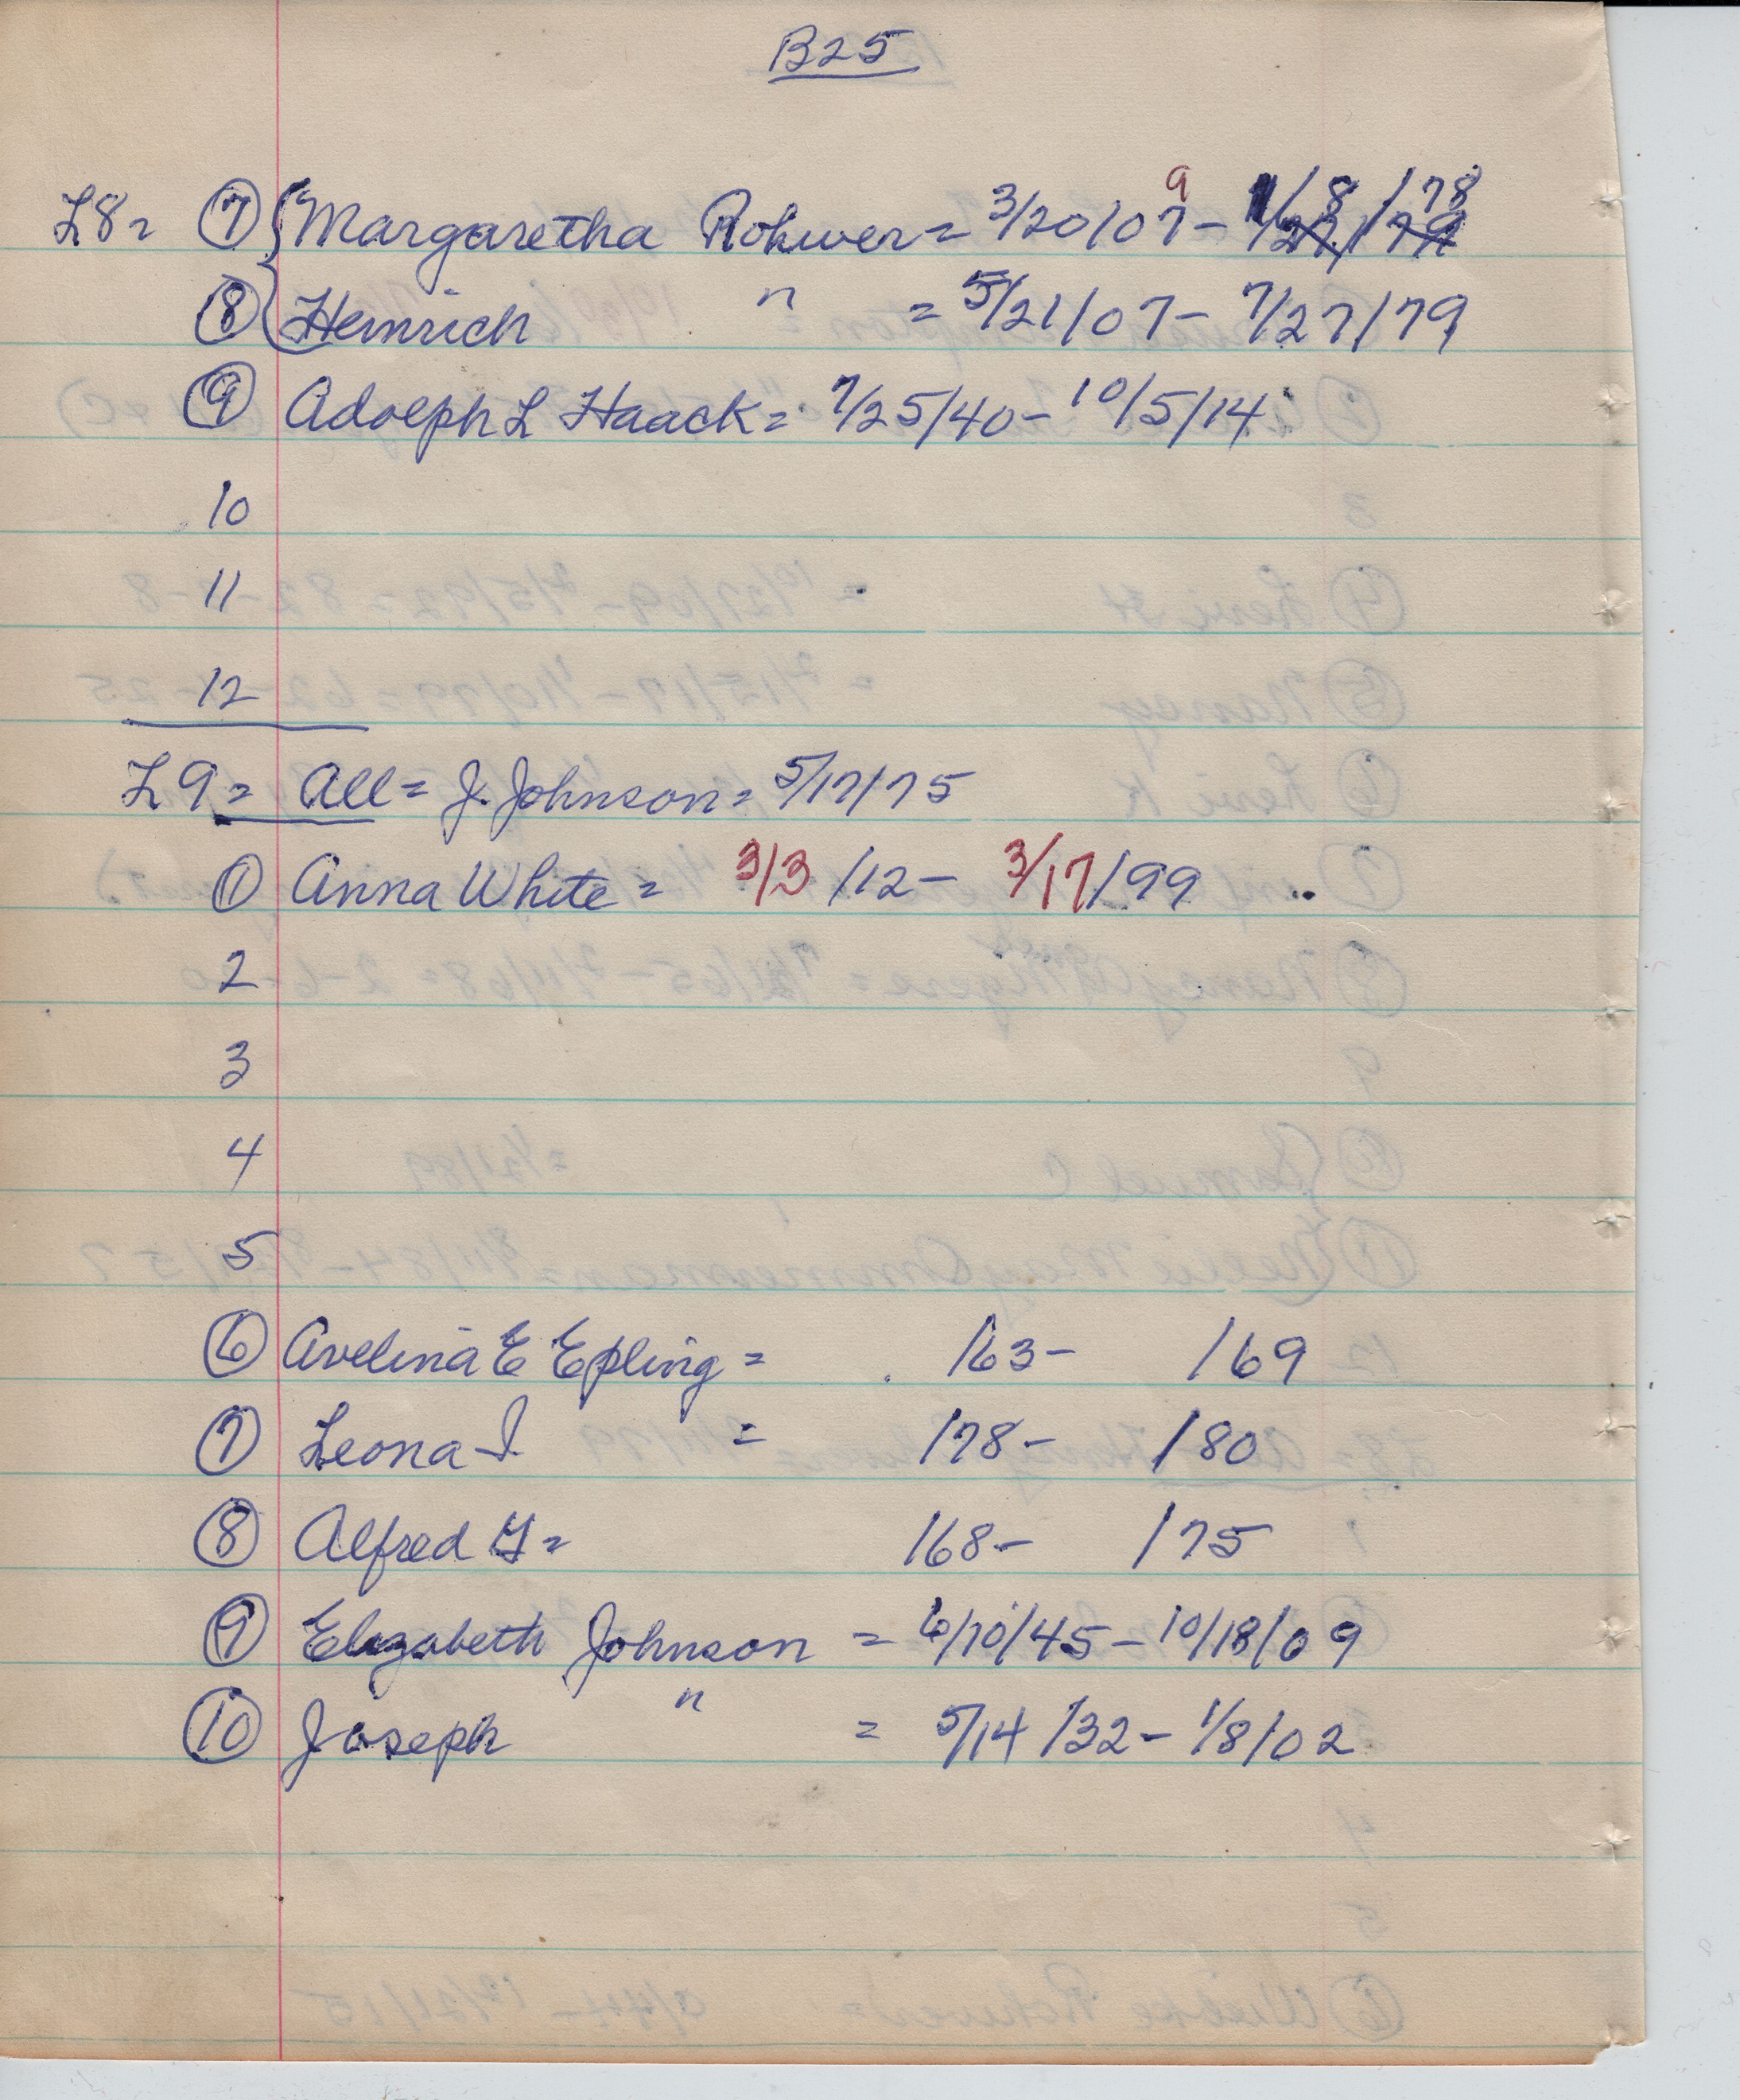 B25
L8= 7 Margaretha Rohwer = 3/20/07 9 - 1/8/78
8 Heinrich " = 5/21/07 - 7/27/79
9 Adolph L Haack = 7/25/40 - 10/5/14
10
11
12
L9= All = J. Johnson = 5/17/75
1 Anna White = 3/3/12 - 3/17/99
2
3
4
5
6 Avelina E Epling = /63 - /69
7 Leona I. = /78 - /80
8 Alfred G = /68 - /75
9 Elizabeth Johnson = 6/10/45 - 10/18/09
10 Joseph " = 5/14/32 - 1/8/02